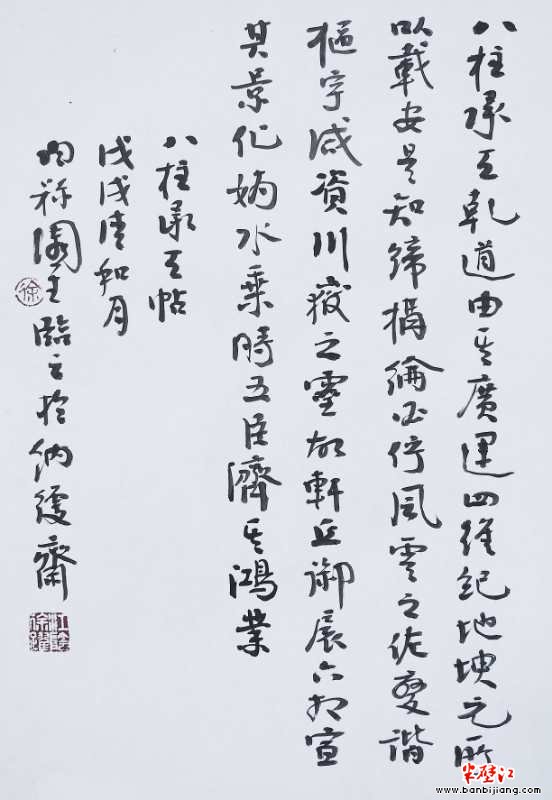 八柱承天乾道由其廣運四維紀地坤元所
以載安是知締搆綸必佇風雲之佐燮諧
樞宇咸資川嶽之靈故軒丘御扆六相宣
其景化媯水乘時五臣濟其鴻業
八柱承天帖
戊戌清和月
園主臨之於納齋
徐
半壁江
www.banbijiang.com